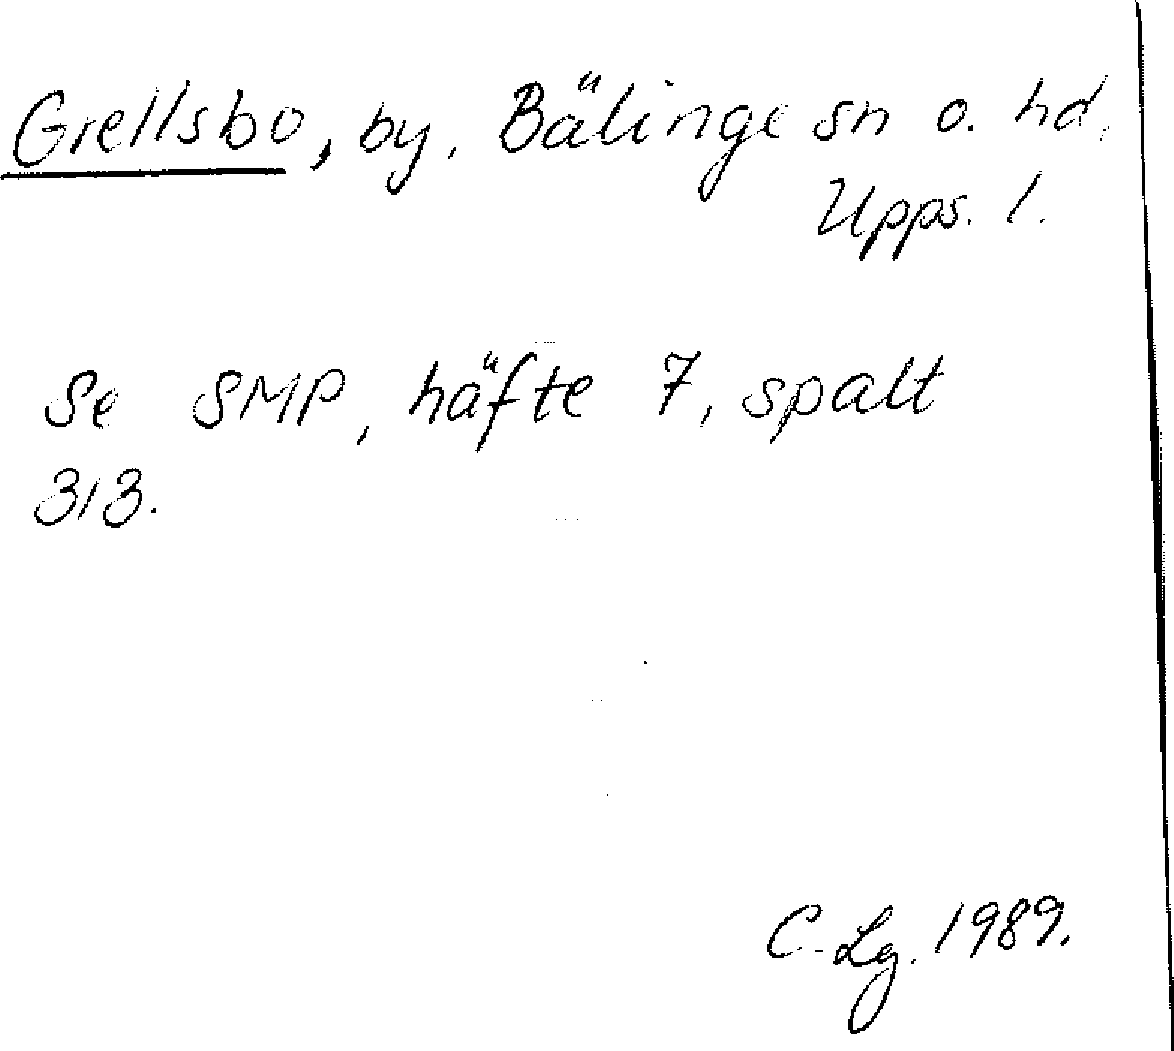 Grellsbo, by, Bälinge sn o. hd,
Upps. l.
Se SMP, häfte 7, spalt
313.
C. Lg. 1989.